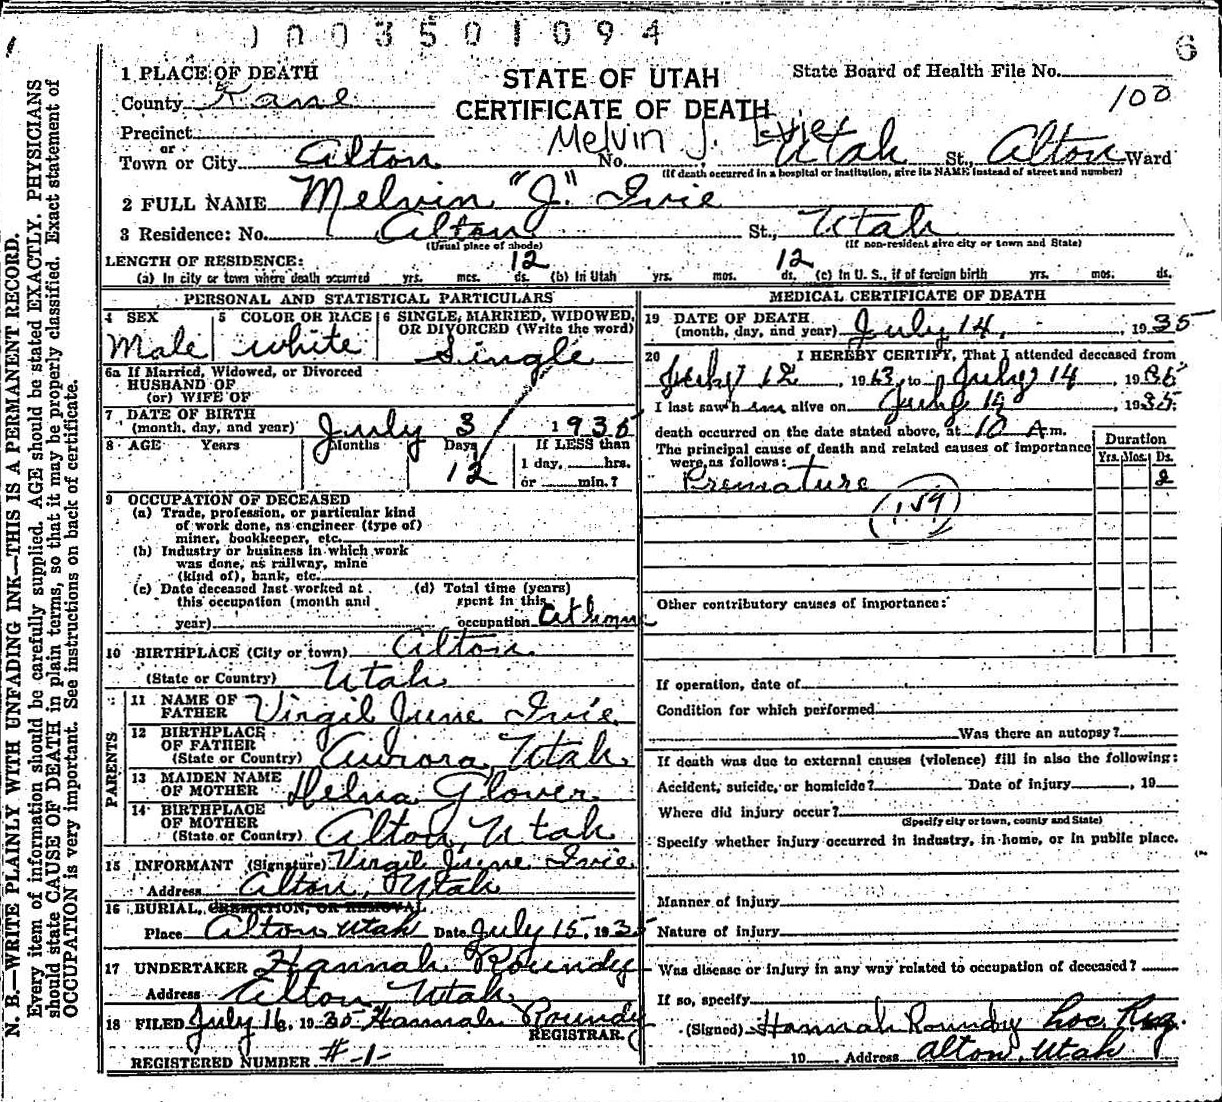 0003501094
6
1 PLACE OF DEATH
STATE OF UTAH
CERTIFICATE OF DEATH
State Board of Health File No.
100
County Kane
Precinct
or
Town or City Alton No. Utah St., Alton Ward
Melvin J. Ivie
(If death occurred in a hospital or institution, give its NAME instead of street and number)
2 FULL NAME Melvin "J." Ivie
3 Residence: No. Alton St., Utah
(Usual place of abode) (If non-resident give city or town and State)
LENGTH OF RESIDENCE:
(a) In city or town where death occurred yrs. mos. 12 ds. (b) In Utah yrs. mos. 12 ds. (c) In U. S., if of foreign birth yrs. mos. ds.
PERSONAL AND STATISTICAL PARTICULARS
4 SEX Male
5 COLOR OR RACE white
6 SINGLE, MARRIED, WIDOWED, OR DIVORCED (Write the word) Single
6a If Married, Widowed, or Divorced
HUSBAND OF
(or) WIFE OF
7 DATE OF BIRTH
(month, day, and year) July 3 1935
8 AGE Years Months Days 12 If LESS than
1 day, hrs.
or min.?
9 OCCUPATION OF DECEASED
(a) Trade, profession, or particular kind
of work done, as engineer (type of)
miner, bookkeeper, etc.
(b) Industry or business in which work
was done, as railway, mine
(kind of), bank, etc.
(c) Date deceased last worked at
this occupation (month and
year)
(d) Total time (years)
spent in this
occupation At home
10 BIRTHPLACE (City or town) Alton
(State or Country) Utah
PARENTS
11 NAME OF
FATHER Virgil June Ivie
12 BIRTHPLACE
OF FATHER
(State or Country) Aurora, Utah
13 MAIDEN NAME
OF MOTHER Helna Glover
14 BIRTHPLACE
OF MOTHER
(State or Country) Alton, Utah
15 INFORMANT (Signature) Virgil June Ivie
Address Alton, Utah
16 BURIAL, CREMATION, OR REMOVAL
Place Alton, Utah Date July 15, 1935
17 UNDERTAKER Hannah Roundy
Address Alton, Utah
18 FILED July 16, 1935 Hannah Roundy
REGISTRAR.
REGISTERED NUMBER #-1-
MEDICAL CERTIFICATE OF DEATH
19 DATE OF DEATH
(month, day, and year) July 14, 1935
20 I HEREBY CERTIFY, That I attended deceased from
July 12, 19 to July 14, 1935
I last saw h alive on July 14, 1935.
death occurred on the date stated above, at 10 A.m.
The principal cause of death and related causes of importance
were as follows:
Duration
Yrs. Mos. Ds.
Premature 2
(159)
Other contributory causes of importance:
If operation, date of
Condition for which performed
Was there an autopsy?
If death was due to external causes (violence) fill in also the following:
Accident, suicide, or homicide? Date of injury , 19
Where did injury occur?
(Specify city or town, county and State)
Specify whether injury occurred in industry, in home, or in public place.
Manner of injury
Nature of injury
Was disease or injury in any way related to occupation of deceased?
If so, specify
(Signed) Hannah Roundy Loc. Reg.
19 Address Alton, Utah
N. B.—WRITE PLAINLY WITH UNFADING INK—THIS IS A PERMANENT RECORD.
Every item of information should be carefully supplied. AGE should be stated EXACTLY. PHYSICIANS
should state CAUSE OF DEATH in plain terms, so that it may be properly classified. Exact statement of
OCCUPATION is very important. See instructions on back of certificate.